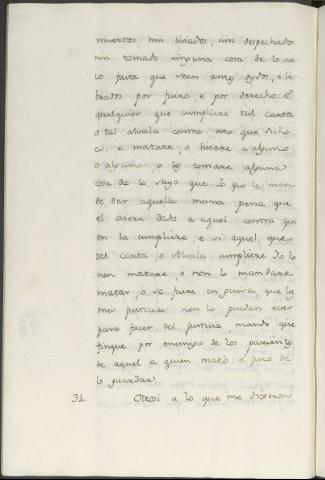 muertos nin lisiados, nin despechados
nin tomado ninguna cosa de lo su
lo fasta que sean antes oydos, e li
brados por fuero, e por derecho. E
qualquier que cumpliere tal carta
o tal alvala contra esto que dicho
es e matare, o lisiare a alguno
o alguno, o le tomare alguna
cosa de lo suyo que Yo que le man
de dar aquella mesma pena que
el oviere dado a aquel contra qui
en la cumpliere, e si aquel que
tal carta, o Alvala cumpliere Yo lo
non matare, o non lo mandare
matar, o se fuere en guisa, que los
mis justicias non lo puedan aver
para facer del justicia mando que
finque por enemigo de los parientes
de aquel a quien mató: e juro de
lo guardar.
31 Otrosi a lo que me dixeron